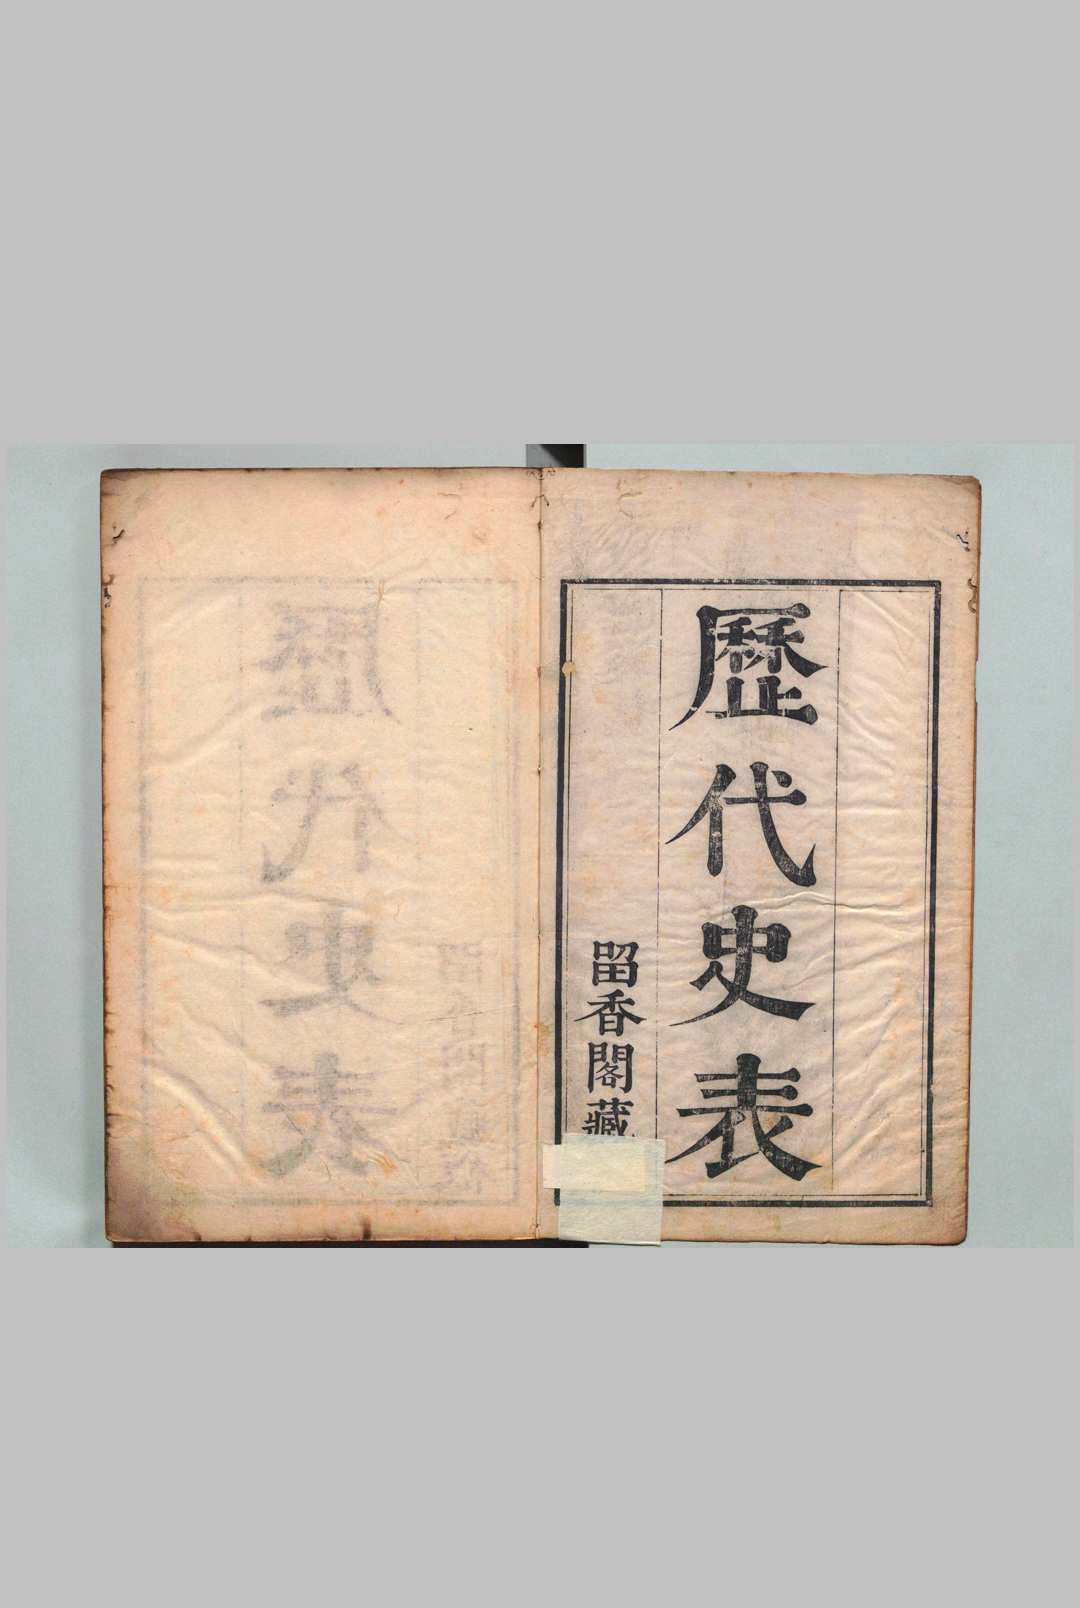 歷代史表
留香閣藏